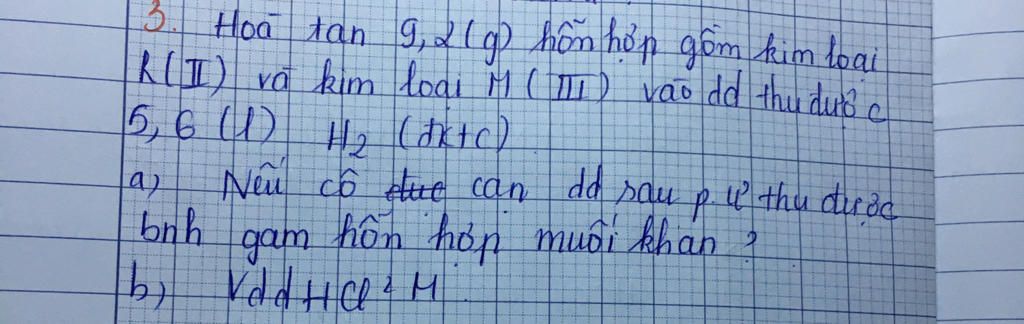 3. Hoà tan 9,2 (g) hỗn hợp gồm kim loại
R (II) và kim loại M (III) vào dd thu được
5,6 (l) H2 (đktc)
a) Nếu cô cạn dd sau p.ư thu được
bnh gam hỗn hợp muối khan ?
b) Vdd HCl 2 M